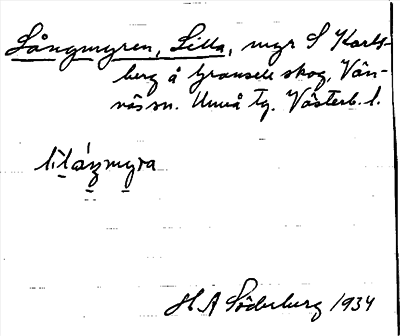 Långmyren, Lilla, myr S Karls-
berg å Gransele skog, Vän-
näs sn. Umeå tg. Västerb. l.
lìlánmyra
H A Söderberg 1934